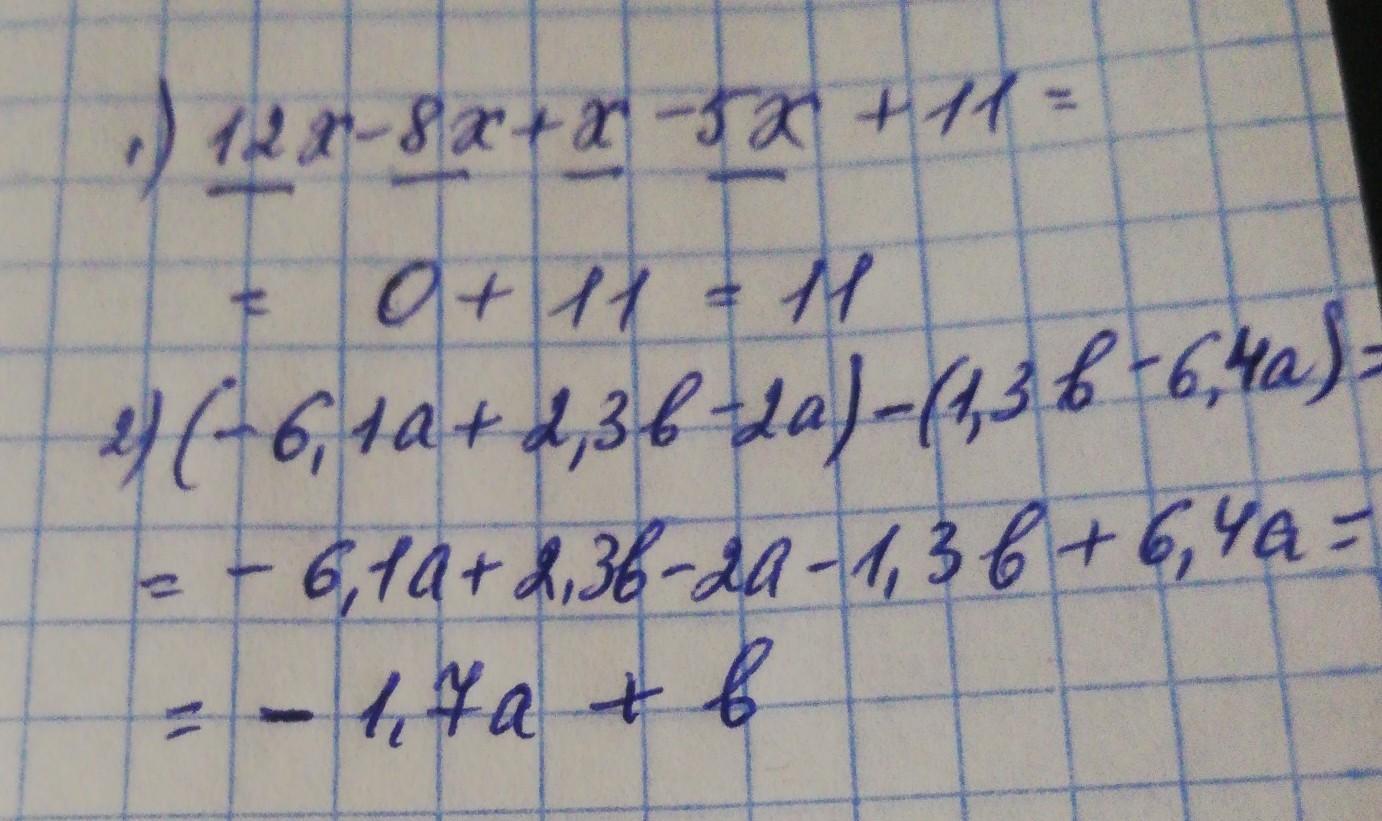 1) 12x-8x+x-5x+11=
= 0+11=11
2) (-6,1a+2,3b-2a)-(1,3b-6,4a)=
= -6,1a+2,3b-2a-1,3b+6,4a=
= -1,7a+b